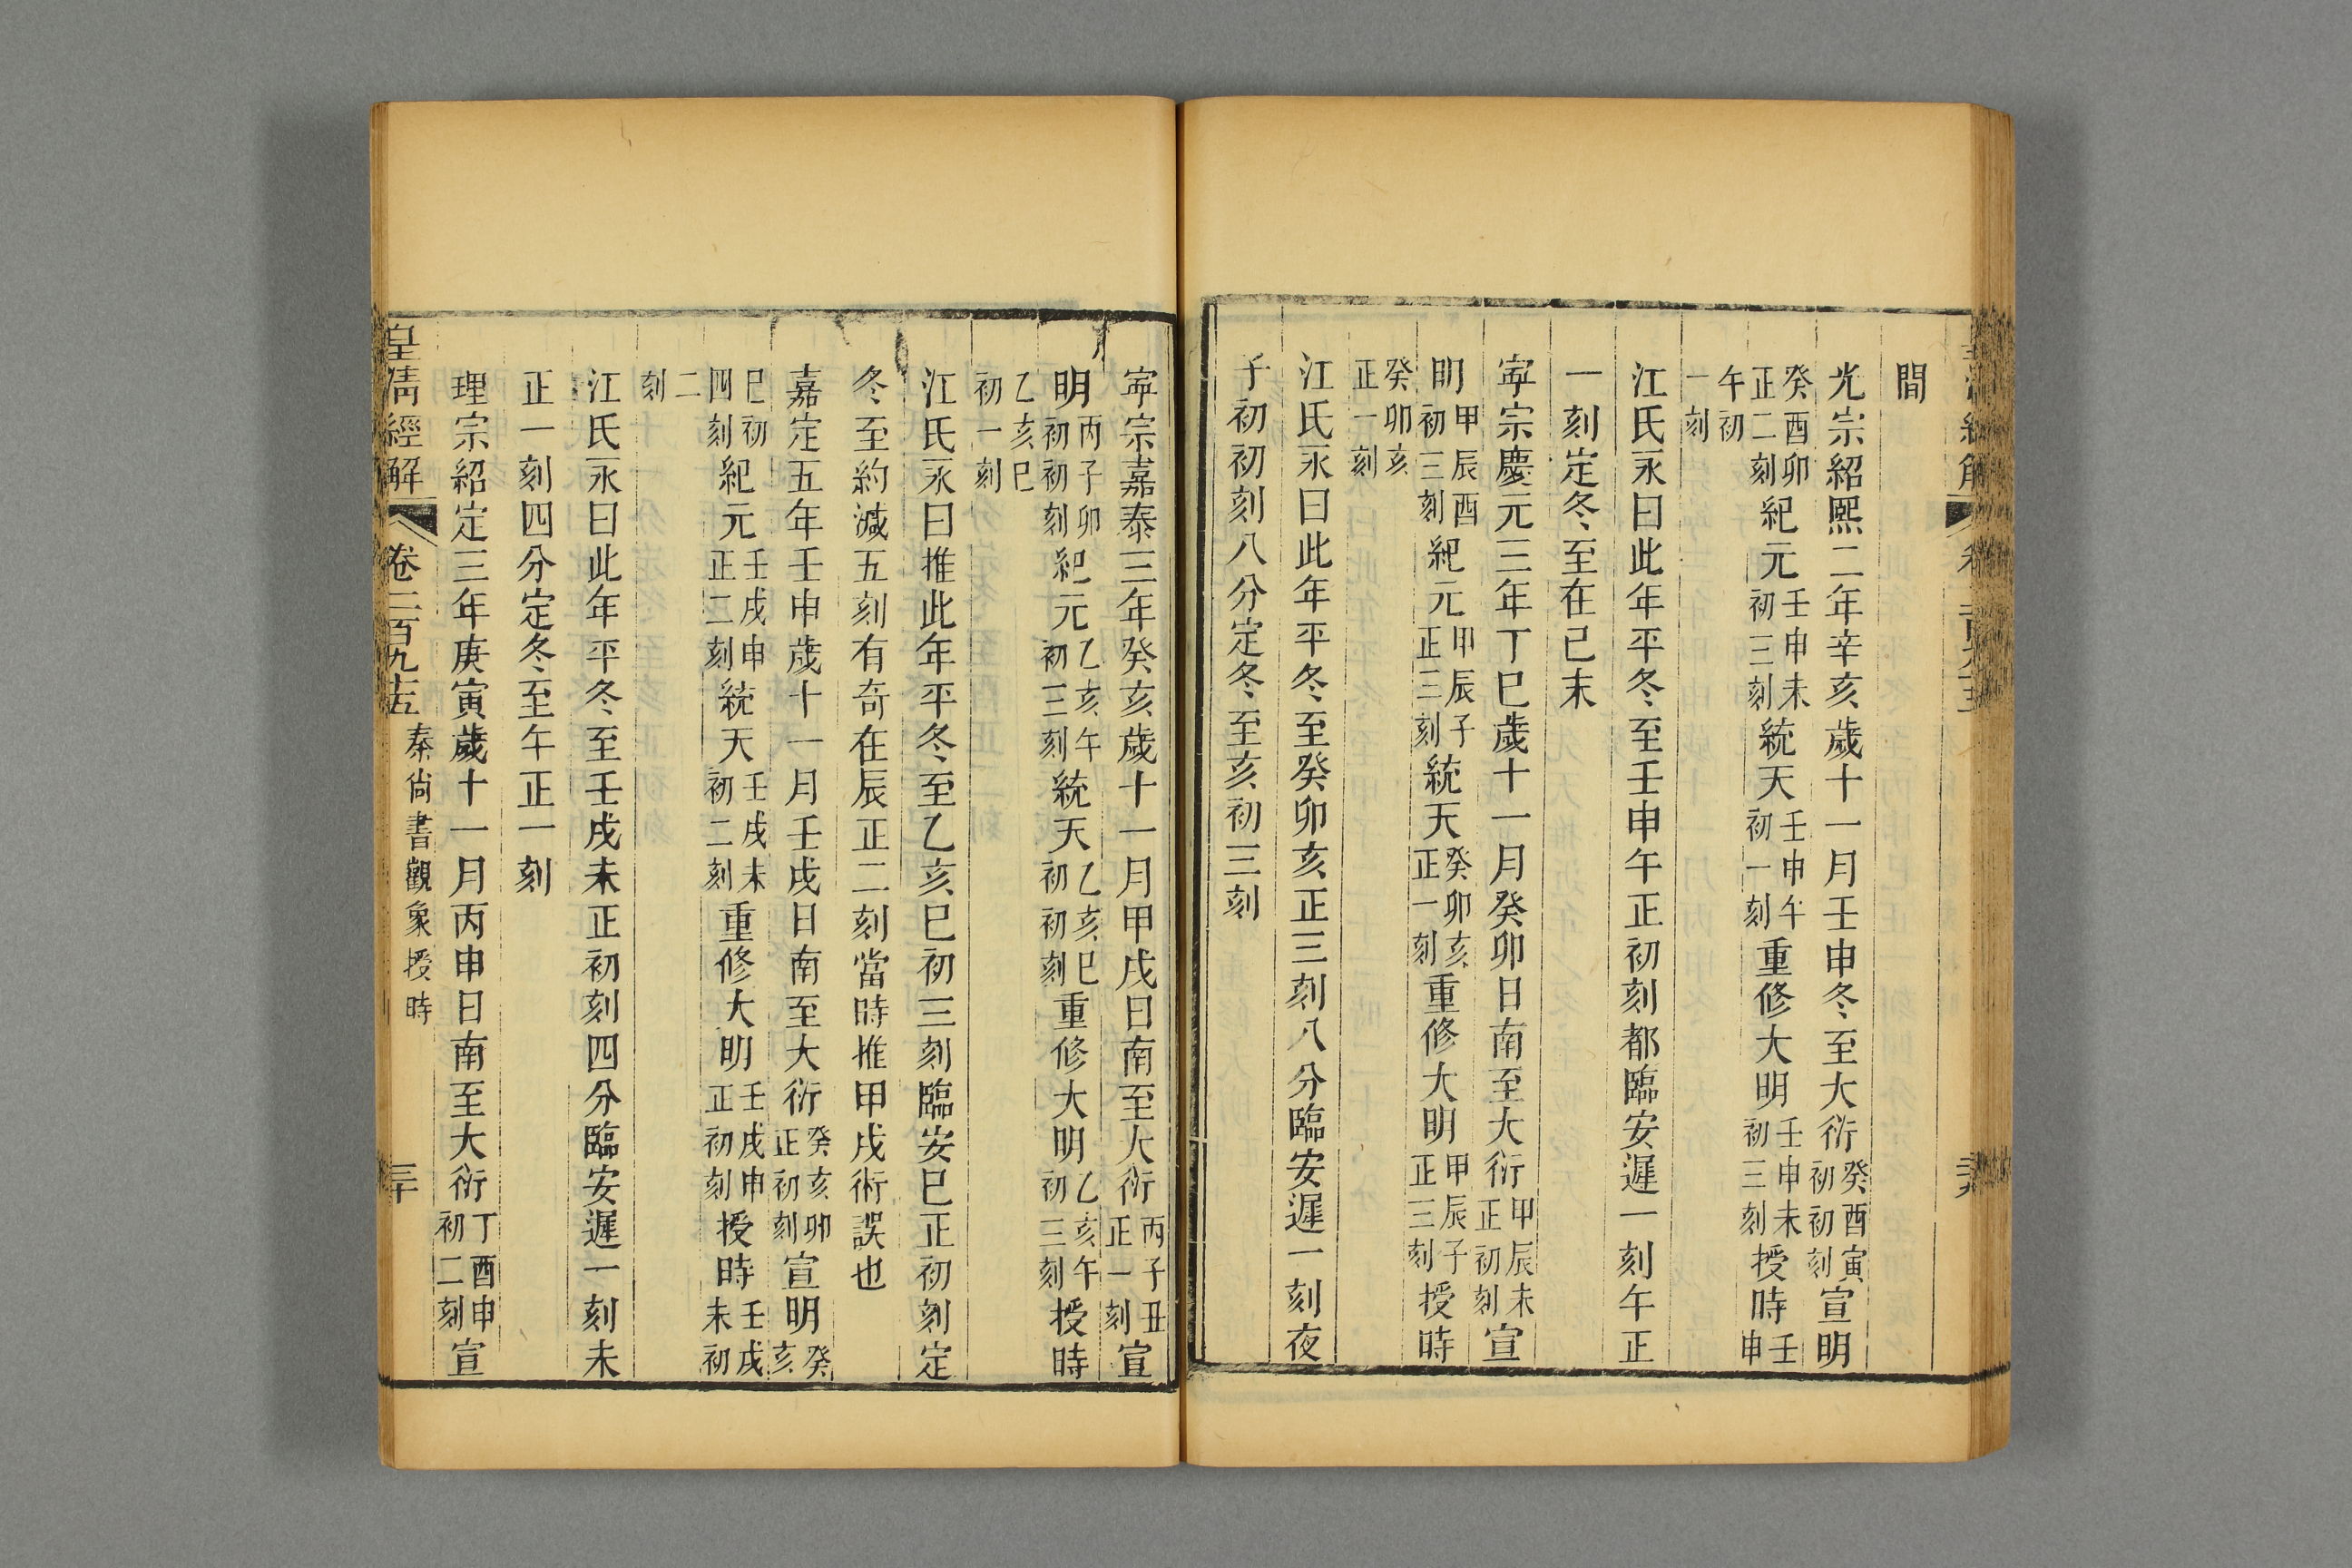 間
光宗紹熙二年辛亥歲十一月壬申冬至大衍癸酉寅初初刻宣明
癸酉卯正二刻紀元壬申未初三刻統天壬申午初一刻重修大明壬申未初三刻授時壬申
午初一刻
江氏永曰此年平冬至壬申午正初刻都臨安遲一刻午正
一刻定冬至在巳末
寧宗慶元三年丁巳歲十一月癸卯日南至大衍甲辰未正初刻宣
明甲辰酉初三刻紀元甲辰子正三刻統天癸卯亥正一刻重修大明甲辰子正三刻授時
癸卯亥正一刻
江氏永曰此年平冬至癸卯亥正三刻八分臨安遲一刻夜
子初初刻八分定冬至亥初三刻
寧宗嘉泰三年癸亥歲十一月甲戌日南至大衍丙子丑正一刻宣
明丙子卯初初刻紀元乙亥午初三刻統天乙亥巳初初刻重修大明乙亥午初三刻授時
乙亥巳初一刻
江氏永曰推此年平冬至乙亥巳初三刻臨安巳正初刻定
冬至約減五刻有奇在辰正二刻當時推甲戌術誤也
嘉定五年壬申歲十一月壬戌日南至大衍癸亥卯正初刻宣明癸亥
巳初四刻紀元壬戌申正二刻統天壬戌未初二刻重修大明壬戌申正初刻授時壬戌未初
二刻
江氏永曰此年平冬至壬戌未正初刻四分臨安遲一刻未
正一刻四分定冬至午正一刻
理宗紹定三年庚寅歲十一月丙申日南至大衍丁酉申初二刻宣
皇清經解 卷二百九十五 秦尚書觀象授時 三十